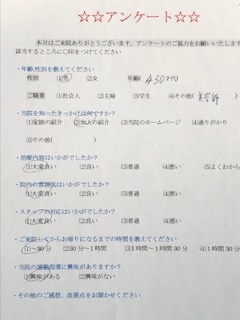 ☆☆アンケート☆☆
本日はご来院ありがとうございます。アンケートのご協力をお願いいたします
該当するところに○印をつけてください
・年齢,性別を教えてください
性別 (1)男 (2)女 年齢( 430
ご職業 (1)社会人 (2)主婦 (3)学生 (4)その他( 美容師
・当院を知ったきっかけは何ですか?
(1)家族の紹介 (2)知人の紹介 (3)当院のホームページ (4)通りがかり
(5)その他( )
・治療内容はいかがでしたか?
(1)大変良い (2)良い (3)普通 (4)悪い (5)よくわから
・院内の雰囲気はいかがでしたか?
(1)大変良い (2)良い (3)普通 (4)悪い
・スタッフの対応はいかがでしたか?
(1)大変良い (2)良い (3)普通 (4)悪い
・ご来院してからお帰りになるまでの時間を教えてください
(1)~30分 (2)30分~1時間 (3)1時間~1時間30分 (4)1時間30分
・当院の運動指導に興味がありますか?
(1)興味がある (2)興味がない
・その他のご感想、改善点をお聞かせください